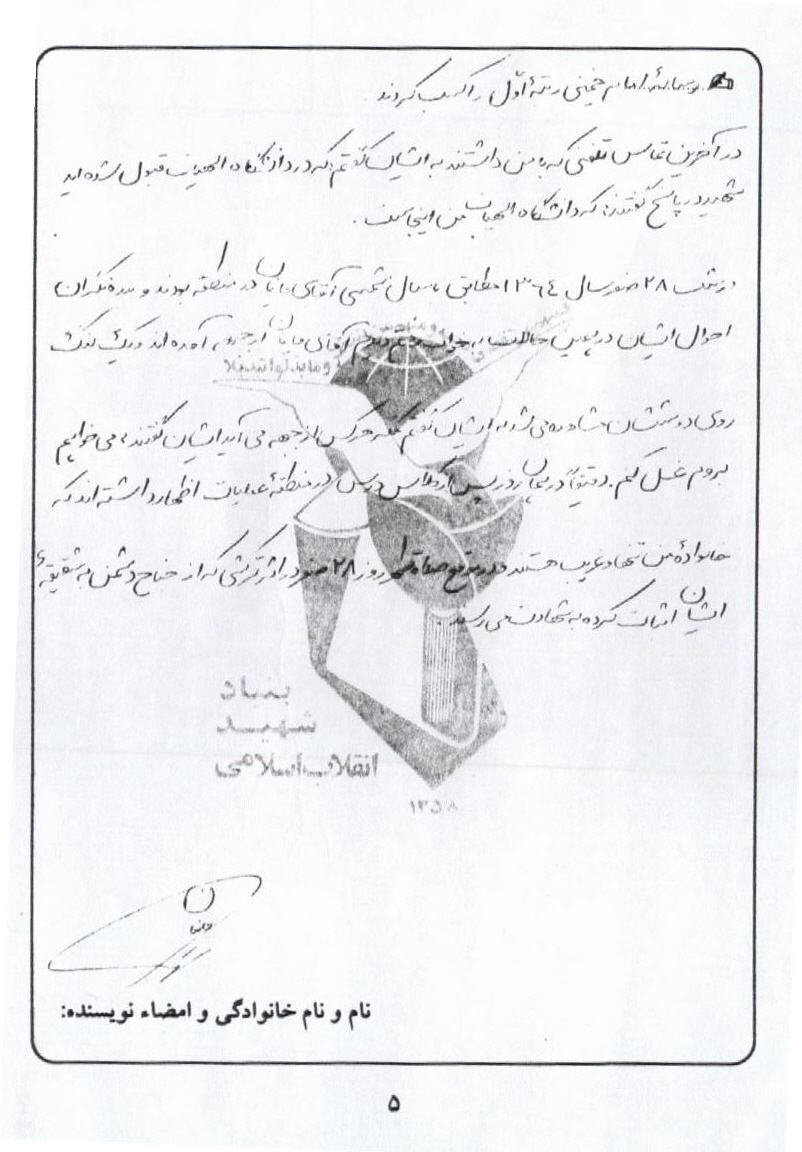 امام خمینی رتبهٔ اوّل را کسب کردند.
در آخرین تماس تلفنی که با من داشتند به ایشان گفتم که در دانشگاه الهیات قبول شده اید
شهید در پاسخ گفتند: که دانشگاه الهیات من اینجاست.
۲۸ صفر سال ۱۳۶۴ مطابق با سال شمسی آقای در منطقه بودند و بنده نگران
احوال ایشان در همین حالت به خواب آقای از جبهه آمده اند و
روی دوششان مشاهده می شد به ایشان گفتم مگر هرکس از جبهه می آید ایشان گفتند، می خواهم
بروم غسل کنم. دقیقاً در همان روز پس از کلاس درس در منطقهٔ عملیات اظهار داشته اند که
خانوادهٔ من تنها و غریب هستند و در موقع روز ۲۸ صفر در اثر ترکشی که از جناح دشمن به شقیقهٔ
ایشان اثابت کرده به شهادت می رسد.
بنیاد
شهید
انقلاب اسلامی
۱۳۵۸
نام و نام خانوادگی و امضاء نویسنده:
۵